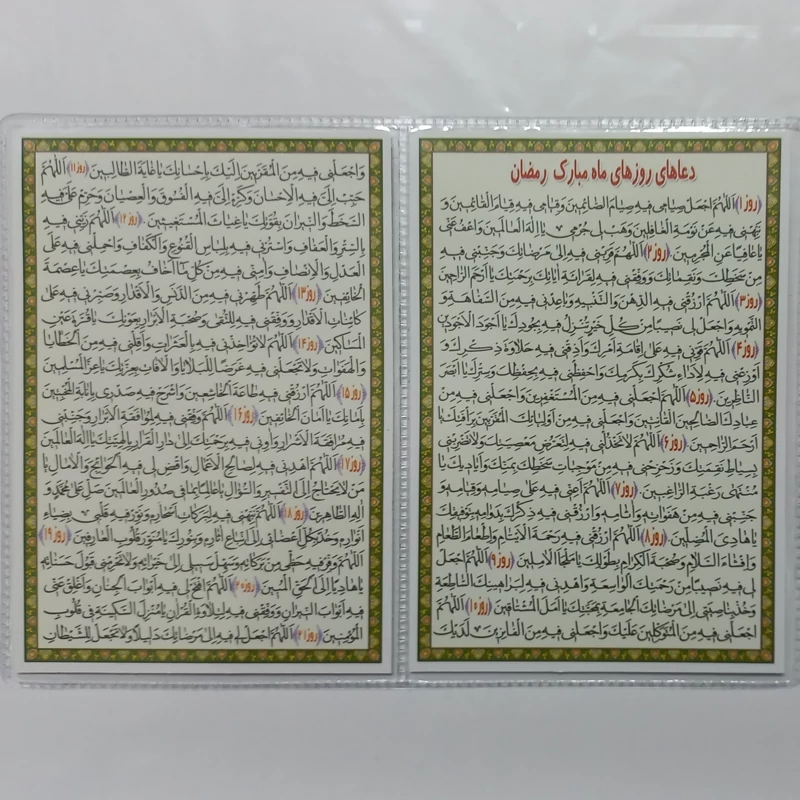 دعاهای روزهای ماه مبارک رمضان
(روز۱) اَللّهُمَّ اجْعَلْ صِیامی فیهِ صِیامَ الصّائِمینَ وَقِیامی فیهِ قِیامَ الْقائِمینَ وَ
نَبِّهْنی فیهِ عَنْ نَوْمَةِ الْغافِلینَ وَهَبْ لی جُرْمی فیهِ یا اِلهَ الْعالَمینَ وَاعْفُ عَنّی
یا عافِیاً عَنِ الْمُجْرِمینَ. (روز۲) اَللّهُمَّ قَرِّبْنی فیهِ اِلی مَرْضاتِکَ وَجَنِّبْنی فیهِ
مِنْ سَخَطِکَ وَنَقِماتِکَ وَوَفِّقْنی فیهِ لِقِرائَةِ ایاتِکَ بِرَحْمَتِکَ یا اَرْحَمَ الرّاحِمینَ
(روز۳) اَللّهُمَّ ارْزُقْنی فیهِ الذِّهْنَ وَالتَّنْبیهَ وَباعِدْنی فیهِ مِنَ السَّفاهَةِ وَ
التَّمْویهِ وَاجْعَلْ لی نَصیباً مِنْ کُلِّ خَیْرٍ تُنْزِلُ فیهِ بِجُودِکَ یا اَجْوَدَ الْاَجْوَدینَ
(روز۴) اَللّهُمَّ قَوِّنی فیهِ عَلی اِقامَةِ اَمْرِکَ وَاَذِقْنی فیهِ حَلاوَةَ ذِکْرِکَ وَ
اَوْزِعْنی فیهِ لِاَداءِ شُکْرِکَ بِکَرَمِکَ وَاحْفَظْنی فیهِ بِحِفْظِکَ وَسِتْرِکَ یا اَبْصَرَ
النّاظِرینَ. (روز۵) اَللّهُمَّ اجْعَلْنی فیهِ مِنَ الْمُسْتَغْفِرینَ وَاجْعَلْنی فیهِ مِنْ
عِبادِکَ الصّالِحینَ الْقانِتینَ وَاجْعَلْنی فیهِ مِنْ اَوْلِیائِکَ الْمُقَرَّبینَ بِرَأْفَتِکَ یا
اَرْحَمَ الرّاحِمینَ. (روز۶) اَللّهُمَّ لاتَخْذُلْنی فیهِ لِتَعَرُّضِ مَعْصِیَتِکَ وَلاتَضْرِبْنی
بِسِیاطِ نَقِمَتِکَ وَزَحْزِحْنی فیهِ مِنْ مُوجِباتِ سَخَطِکَ بِمَنِّکَ وَاَیادیکَ یا
مُنْتَهی رَغْبَةِ الرّاغِبینَ. (روز۷) اَللّهُمَّ اَعِنّی فیهِ عَلی صِیامِهِ وَقِیامِهِ وَ
جَنِّبْنی فیهِ مِنْ هَفَواتِهِ وَاثامِهِ وَارْزُقْنی فیهِ ذِکْرَکَ بِدَوامِهِ بِتَوْفیقِکَ
یا هادِیَ الْمُضِلّینَ. (روز۸) اَللّهُمَّ ارْزُقْنی فیهِ رَحْمَةَ الْاَیْتامِ وَاِطْعامَ الطَّعامِ
وَاِفْشاءَ السَّلامِ وَصُحْبَةَ الْکِرامِ بِطَوْلِکَ یا مَلْجَأَ الْامِلینَ (روز۹) اَللّهُمَّ اجْعَلْ
لی فیهِ نَصیباً مِنْ رَحْمَتِکَ الْواسِعَةِ وَاهْدِنی فیهِ لِبَراهینِکَ السّاطِعَةِ
وَخُذْ بِناصِیَتی اِلی مَرْضاتِکَ الْجامِعَةِ بِمَحَبَّتِکَ یا اَمَلَ الْمُشْتاقینَ (روز۱۰) اَللّهُمَّ
اجْعَلْنی فیهِ مِنَ الْمُتَوَکِّلینَ عَلَیْکَ وَاجْعَلْنی فیهِ مِنَ الْفائِزینَ لَدَیْکَ
وَاجْعَلْنی فیهِ مِنَ الْمُقَرَّبینَ اِلَیْکَ بِاِحْسانِکَ یا غایَةَ الطّالِبینَ (روز۱۱) اَللّهُمَّ
حَبِّبْ اِلَیَّ فیهِ الْاِحْسانَ وَکَرِّهْ اِلَیَّ فیهِ الْفُسُوقَ وَالْعِصْیانَ وَحَرِّمْ عَلَیَّ فیهِ
السَّخَطَ وَالنّیرانَ بِعَوْنِکَ یا غِیاثَ الْمُسْتَغیثینَ. (روز۱۲) اَللّهُمَّ زَیِّنّی فیهِ
بِالسِّتْرِ وَالْعَفافِ وَاسْتُرْنی فیهِ بِلِباسِ الْقُنُوعِ وَالْکَفافِ وَاحْمِلْنی فیهِ عَلَی
الْعَدْلِ وَالْاِنْصافِ وَامِنّی فیهِ مِنْ کُلِّ ما اَخافُ بِعِصْمَتِکَ یا عِصْمَةَ
الْخائِفینَ (روز۱۳) اَللّهُمَّ طَهِّرْنی فیهِ مِنَ الدَّنَسِ وَالْاَقْذارِ وَصَبِّرْنی فیهِ عَلی
کائِناتِ الْاَقْدارِ وَوَفِّقْنی فیهِ لِلتُّقی وَصُحْبَةِ الْاَبْرارِ بِعَوْنِکَ یا قُرَّةَ عَیْنِ
الْمَساکینِ (روز۱۴) اَللّهُمَّ لاتُؤاخِذْنی فیهِ بِالْعَثَراتِ وَاَقِلْنی فیهِ مِنَ الْخَطایا
وَ الْهَفَواتِ وَلاتَجْعَلْنی فیهِ غَرَضاً لِلْبَلایا وَالْافاتِ بِعِزَّتِکَ یا عِزَّ الْمُسْلِمینَ
(روز۱۵) اَللّهُمَّ ارْزُقْنی فیهِ طاعَةَ الْخاشِعینَ وَاشْرَحْ فیهِ صَدْری بِاِنابَةِ الْمُخْبِتینَ
بِاَمانِکَ یا اَمانَ الْخائِفینَ (روز۱۶) اَللّهُمَّ وَفِّقْنی فیهِ لِمُوافَقَةِ الْاَبْرارِ وَجَنِّبْنی
فیهِ مُرافَقَةَ الْاَشْرارِ وَاوِنی فیهِ بِرَحْمَتِکَ اِلی دارِ الْقَرارِ بِاِلهِیَّتِکَ یا اِلهَ الْعالَمینَ
(روز۱۷) اَللّهُمَّ اهْدِنی فیهِ لِصالِحِ الْاَعْمالِ وَاقْضِ لی فیهِ الْحَوائِجَ وَالْامالَ یا
مَنْ لایَحْتاجُ اِلَی التَّفْسیرِ وَالسُّؤالِ یا عالِماً بِما فی صُدُورِ الْعالَمینَ صَلِّ عَلی مُحَمَّدٍ وَ
الِهِ الطّاهِرینَ (روز۱۸) اَللّهُمَّ نَبِّهْنی فیهِ لِبَرَکاتِ اَسْحارِهِ وَنَوِّرْ فیهِ قَلْبی بِضِیاءِ
اَنْوارِهِ وَخُذْ بِکُلِّ اَعْضائی اِلَی اتِّباعِ اثارِهِ بِنُورِکَ یا مُنَوِّرَ قُلُوبِ الْعارِفینَ (روز۱۹)
اَللّهُمَّ وَفِّرْ فیهِ حَظّی مِنْ بَرَکاتِهِ وَسَهِّلْ سَبیلی اِلی خَیْراتِهِ وَلاتَحْرِمْنی قَبُولَ حَسَناتِهِ
یا هادِیاً اِلَی الْحَقِّ الْمُبینِ (روز۲۰) اَللّهُمَّ افْتَحْ لی فیهِ اَبْوابَ الْجِنانِ وَاَغْلِقْ عَنّی
فیهِ اَبْوابَ النّیرانِ وَوَفِّقْنی فیهِ لِتِلاوَةِ الْقُرْانِ یا مُنْزِلَ السَّکینَةِ فی قُلُوبِ
الْمُؤْمِنینَ (روز۲۱) اَللّهُمَّ اجْعَلْ لی فیهِ اِلی مَرْضاتِکَ دَلیلاً وَلاتَجْعَلْ لِلشَّیْطانِ